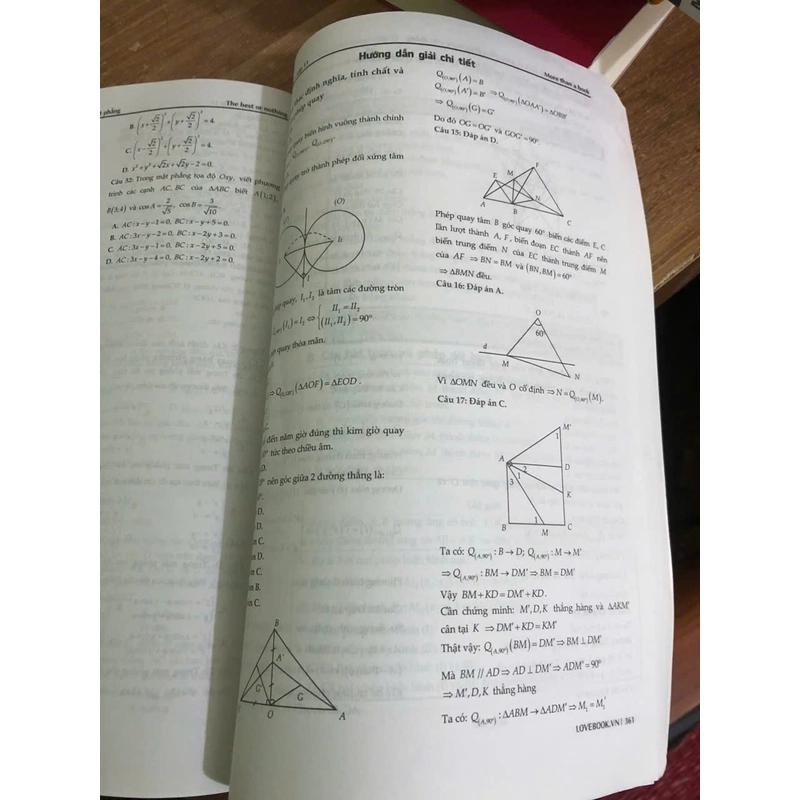 phẳng
The best or nothing
B. (x+√2/2)²+(y+√2/2)²=4.
C. (x−√2/2)²+(y+√2/2)²=4.
D. x²+y²+√2x+√2y−2=0.
Câu 32: Trong mặt phẳng tọa độ Oxy, viết phương
trình các cạnh AC, BC của ΔABC biết A(1;2),
B(3;4) và cosA=2/√5, cosB=3/√10.
A. AC: x−y−1=0, BC: x−y+5=0.
B. AC: 3x−y−2=0, BC: x−2y+3=0.
C. AC: 3x−y−1=0, BC: x−2y+5=0.
D. AC: 3x−y−4=0, BC: x−2y+2=0.
Hướng dẫn giải chi tiết
More than a book
định nghĩa, tính chất và
quay
biến hình vuông thành chính
trở thành phép đối xứng tâm
(O)
I₂
quay, I₁, I₂ là tâm các đường tròn
(I₁)=I₂ ⇔ { II₁=II₂
(II₁,II₂)=90°
quay thỏa mãn.
(ΔAOF)=ΔEOD.
đến năm giờ đúng thì kim giờ quay
tức theo chiều âm.
D.
nên góc giữa 2 đường thẳng là:
D.
D.
C.
D.
C.
B.
C.
B
A'
G'
G
O
A
Q(O,90°)(A)=B
Q(O,90°)(A')=B' ⇒Q(O,90°)(ΔOAA')=ΔOBB'
⇒Q(O,90°)(G)=G'
Do đó OG=OG' và GOG'=90°.
Câu 15: Đáp án D.
F
M
E
N
A
B
C
Phép quay tâm B góc quay 60° biến các điểm E, C
lần lượt thành A, F, biến đoạn EC thành AF nên
biến trung điểm N của EC thành trung điểm M
của AF ⇒BN=BM và (BN,BM)=60°
⇒ΔBMN đều.
Câu 16: Đáp án A.
O
60°
d
M
N
Vì ΔOMN đều và O cố định ⇒N=Q(O,60°)(M).
Câu 17: Đáp án C.
M'
1
A
2
D
1
3
K
1
B
M
C
Ta có: Q(A,90°): B→D; Q(A,90°): M→M'
⇒Q(A,90°): BM→DM'⇒BM=DM'
Vậy BM+KD=DM'+KD.
Cần chứng minh: M',D,K thẳng hàng và ΔAKM'
cân tại K ⇒DM'+KD=KM'
Thật vậy: Q(A,90°)(BM)=DM'⇒BM⊥DM'
Mà BM//AD⇒AD⊥DM'⇒ADM'=90°
⇒M',D,K thẳng hàng
Ta có: Q(A,90°): ΔABM→ΔADM'⇒M₁=M₁'
LOVEBOOK.VN | 361